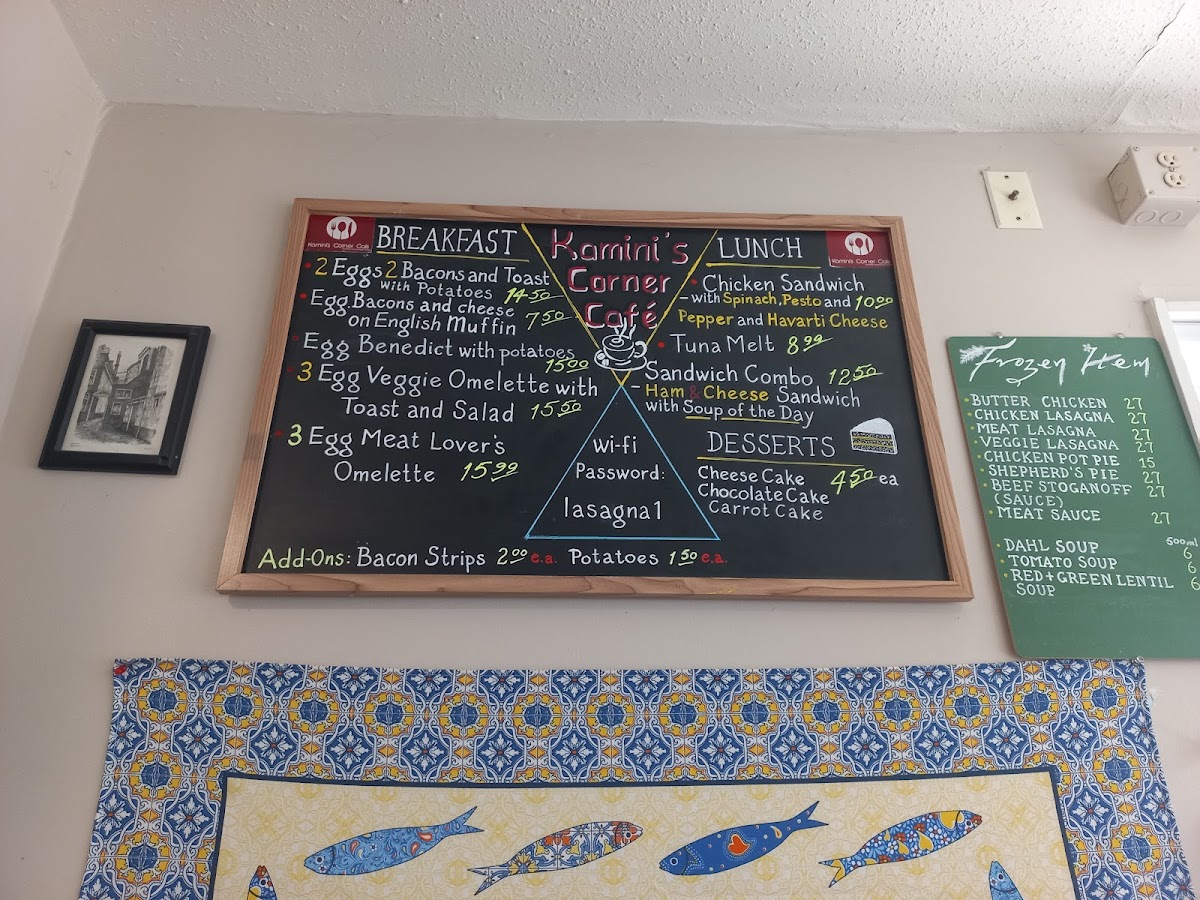 Kamini's Corner Café
BREAKFAST
• 2 Eggs 2 Bacons and Toast
with Potatoes 14.50
• Egg. Bacons and cheese
on English Muffin 7.50
• Egg Benedict with potatoes
15.00
• 3 Egg Veggie Omelette with
Toast and Salad 15.50
• 3 Egg Meat Lover's
Omelette 15.99
Kamini's
Corner
Café
Wi-fi
Password:
lasagna1
Kamini's Corner Café
LUNCH
• Chicken Sandwich
- with Spinach, Pesto and 10.00
Pepper and Havarti Cheese
• Tuna Melt 8.99
Sandwich Combo 12.50
- Ham & Cheese Sandwich
with Soup of the Day
DESSERTS
Cheese Cake 4.50 ea
Chocolate Cake
Carrot Cake
Add-Ons: Bacon Strips 2.00 e.a. Potatoes 1.50 e.a.
Frozen Item
• BUTTER CHICKEN 27
• CHICKEN LASAGNA 27
• MEAT LASAGNA 27
• VEGGIE LASAGNA 27
• CHICKEN POT PIE 15
• SHEPHERD'S PIE 27
• BEEF STOGANOFF 27
(SAUCE)
• MEAT SAUCE 27
500ml
• DAHL SOUP 6
• TOMATO SOUP 6
• RED + GREEN LENTIL 6
SOUP